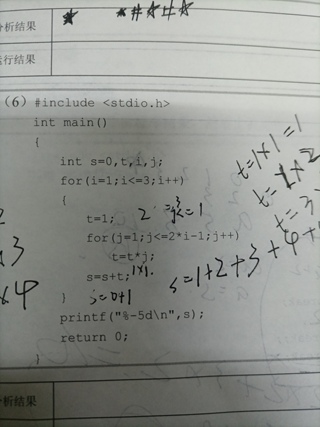 分析结果
★ ★#☆#☆
运行结果
(6) #include <stdio.h>
int main()
{
int s=0,t,i,j;
for(i=1;i<=3;i++)
{
t=1;
for(j=1;j<=2*i-1;j++)
t=t*j;
s=s+t; 1×1
} s=0+1
printf("%-5d\n",s);
return 0;
}
t=1×1=1
t=1×2
t=3
s=1+2+3+4+
×3
×4
分析结果